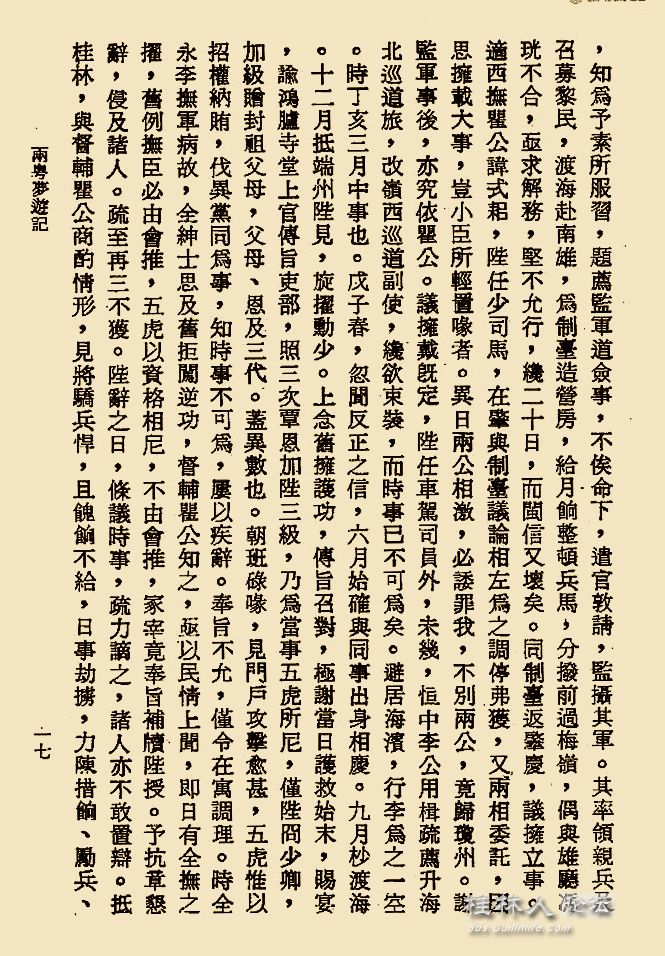 ，知爲予素所服習，題薦監軍道僉事，不俟命下，遣官敦請，監攝其軍。其率領親兵
召募黎民，渡海赴南雄，爲制臺造營房，給月餉整頓兵馬，分撥前過梅嶺，偶與雄廳
珖不合，亟求解務，堅不允行，纔二十日，而閩信又壞矣。同制臺返肇慶，議擁立事。
適西撫瞿公諱式耜，陞任少司馬，在肇與制臺議論相左爲之調停弗獲，又兩相委託，因
思擁載大事，豈小臣所輕置喙者。異日兩公相激，必諉罪我，不別兩公，竟歸瓊州。
監軍事後，亦究依瞿公。議擁戴旣定，陞任車駕司員外，未幾，恒中李公用楫疏薦升海
北巡道旅，改嶺西巡道副使，纔欲束裝，而時事已不可爲矣。避居海濱，行李爲之一空
。時丁亥三月中事也。戊子春，忽聞反正之信，六月始確與同事出身相慶。九月杪渡海
。十二月抵端州陛見，旋擢勳少。上念舊擁護功，傳旨召對，極謝當日護救始末，賜宴
，諭鴻臚寺堂上官傳旨吏部，照三次覃恩加陞三級，乃爲當事五虎所尼，僅陞冏少卿，
加級贈封祖父母，父母、恩及三代。蓋異數也。朝班碌喙，見門戶攻擊愈甚，五虎惟以
招權納賄，伐異黨同爲事，知時事不可爲，屢以疾辭。奉旨不允，僅令在寓調理。時全
永李撫軍病故，全紳士思及舊拒闖逆功，督輔瞿公知之，亟以民情上聞，即日有全撫之
擢，舊例撫臣必由會推，五虎以資格相尼，不由會推，冢宰竟奉旨補牘陞授。予抗章懇
辭，侵及諸人。疏至再三不獲。陛辭之日，條議時事，疏力謫之，諸人亦不敢置辯。抵
桂林，與督輔瞿公商酌情形，見將驕兵悍，且餽餉不給，日事劫擄，力陳措餉、勵兵、
兩粵夢遊記
一七
桂林人论坛
Bbs.Guilinlife.com